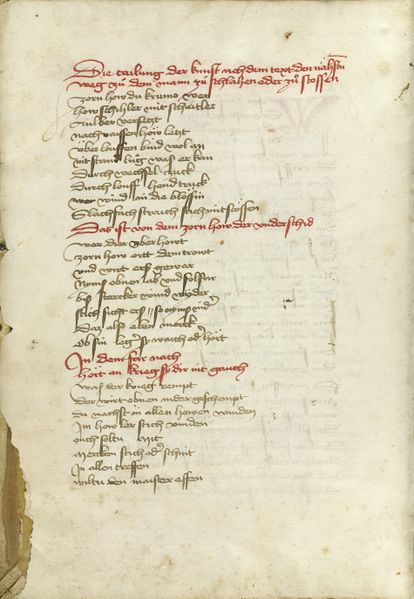 Die tailung der kunst nach dem text den nähsten
weg zů dem mann zů schlahen oder zů stossen
zorn how du krump wer
how schihler mit schaitler
alber versetzt
nach raissen how letzt
vber louffen bind wol an
nit stand lůg was er kan
durch wechsel zuck
durch louff hend truck
wind in die blössin
Slach fach strich stich mit stössen
Das ist von dem zorn how der vnderschid
wer dier vber howt
zorn how ortt dem trowt
vnd wirt erß gewar
Nims obnen ab vnd für far
biß stercker wind wider
stich sicht erß so nims nider
Daz also eben merck
Ob sin leger sy waich oder hört
In dem far nach
Hört an krieg sy dir nit gauch
waß der krieg rempt
der wirt obnen nider geschempt
du nachst in allen höwen winden
Im how ler stich vinden
ouch soltu mit
mercken stich oder schnit
In allen treffen
wiltu den maister effen